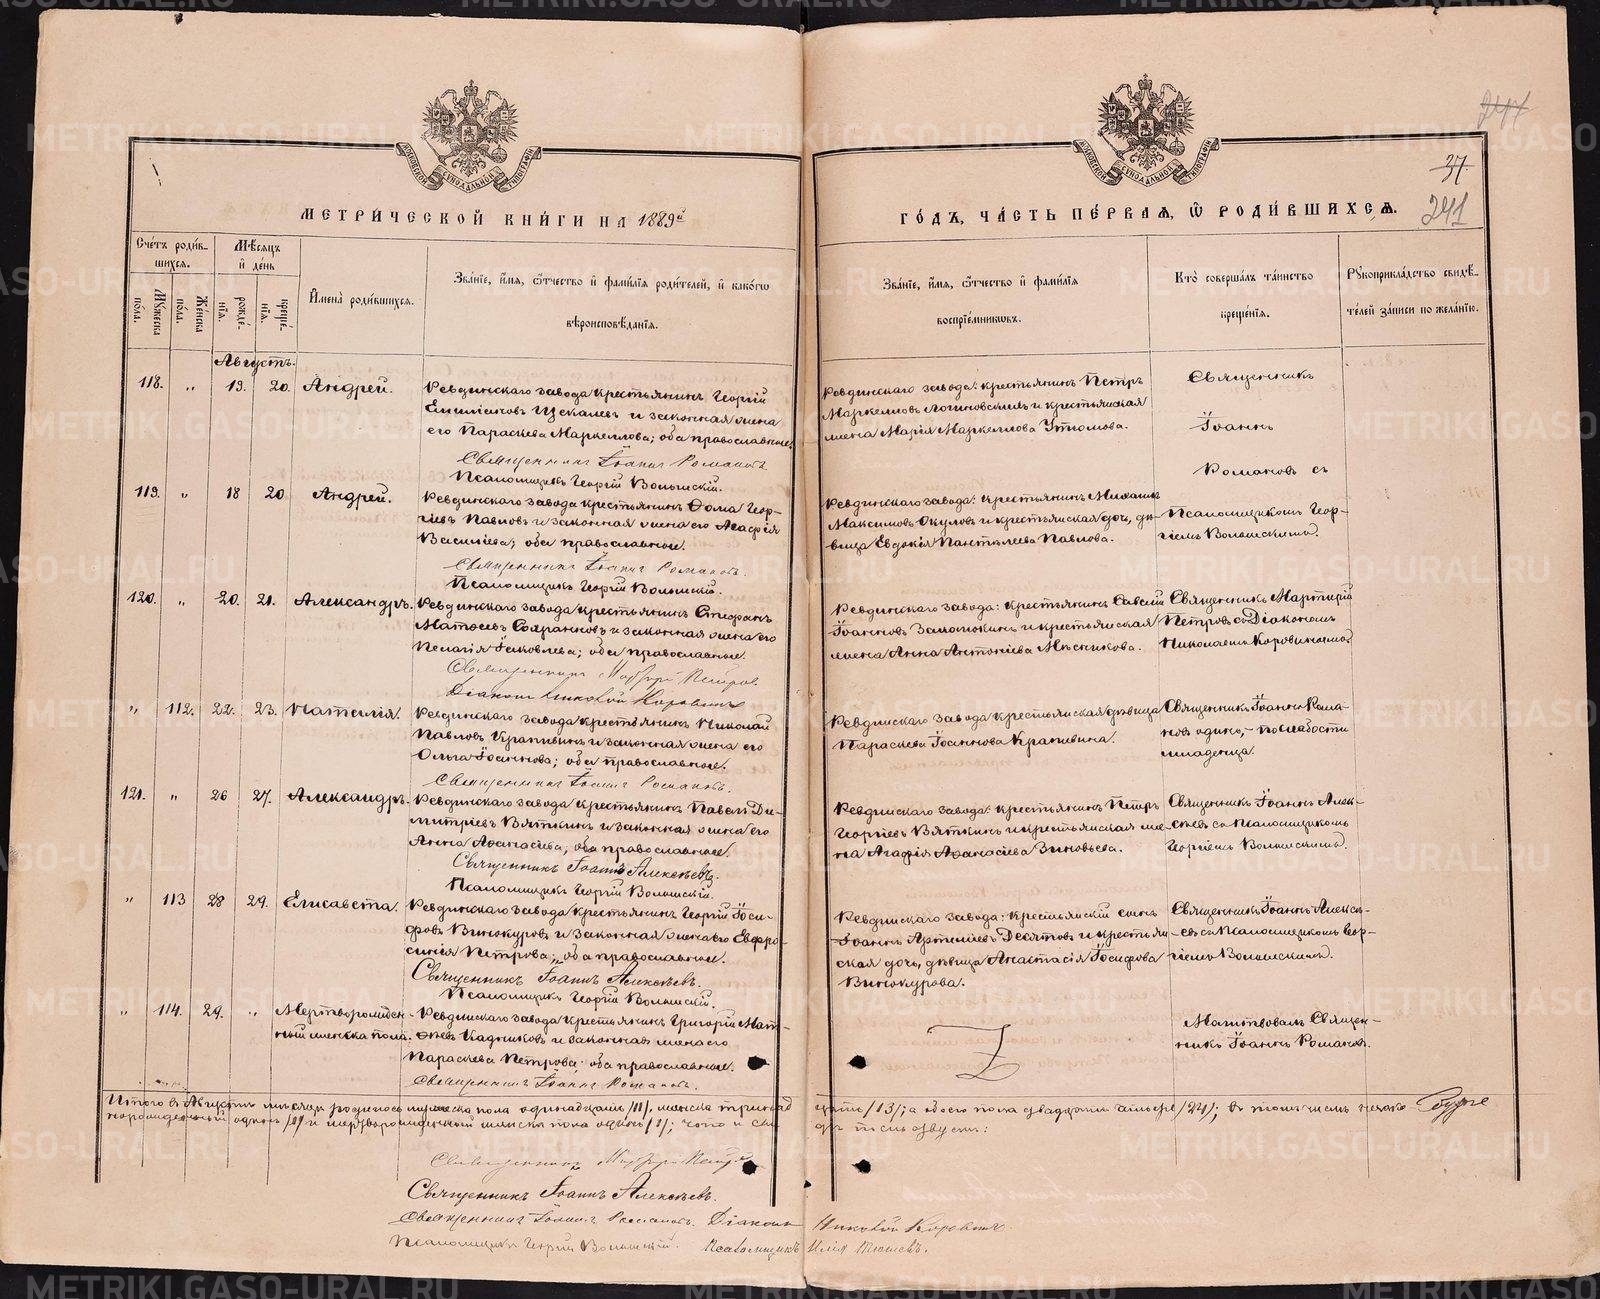 METRIKI.GASO-URAL.RU
241
37
241
МОСКОВСКОЙ СѴНОДАЛЬНОЙ ТИПОГРАФІИ
МЕТРИ́ЧЕСКОЙ КНИ́ГИ НА 1889й
ГО́ДЪ, ЧА́СТЬ ПЕ́РВАЯ, Ѡ РОДИ́ВШИХСЯ.
Сче́тъ роди́вшихся.
Мѣ́сяцъ и҆ де́нь
Мꙋ́жеска по́ла.
Же́нска по́ла.
рожде́нїя.
креще́нїя.
И҆мена̀ роди́вшихся.
Зва́нїе, и҆́мя, ѻ҆́тчество и҆ фами́лїя роди́телей, и҆ како́гѡ вѣроисповѣ́данїя.
Зва́нїе, и҆́мя, ѻ҆́тчество и҆ фами́лїя воспрїе́мникѡвъ.
Кто̀ соверша́лъ та́инство креще́нїя.
Рꙋкоприкла́дство свидѣ́телей за́писи по жела́нїю.
Августъ.
118. „ 19. 20. Андрей.
Ревдинскаго завода крестьянинъ Георгій
и законная жена
его Параскева Маркеллова; оба православные.
Священникъ Іоаннъ Романовъ
Псаломщикъ Георгій Волынскій.
Ревдинскаго завода: крестьянинъ Петръ
Маркеловъ Логиновскихъ и крестьянская
жена Марія Маркеллова Утюмова.
Священникъ
Іоаннъ
Романовъ съ
Псаломщикомъ Геор-
гіемъ Волынскимъ.
119. „ 18 20 Андрей.
Ревдинскаго завода крестьянинъ Ѳома Геор-
гіевъ Павловъ и законная жена его Агафія
Василіева; оба православные.
Священникъ Іоаннъ Романовъ.
Псаломщикъ Георгій Волынскій.
Ревдинскаго завода: крестьянинъ Михаилъ
Максимовъ Окуловъ и крестьянская дочь, дѣ-
вица Евдокія Пантелеева Павлова.
120. „ 20. 21. Александръ.
Ревдинскаго завода крестьянинъ Стефанъ
Матѳеевъ и законная жена его
Пелагія Іаковлева; оба православные.
Священникъ Мартирій Петровъ.
Діаконъ Николай Коровинъ
Ревдинскаго завода: крестьянинъ Савелій
Іоанновъ и крестьянская
жена Анна Антоніева Мѣсникова.
Священникъ Мартирій
Петровъ съ Діакономъ
Николаемъ Коровинымъ
„ 112. 22. 23. Наталія.
Ревдинскаго завода крестьянинъ Николай
Павловъ Крапивинъ и законная жена его
Ольга Іоаннова; оба православные.
Священникъ Іоаннъ Романовъ.
Ревдинскаго завода крестьянская дѣвица
Параскева Іоаннова Крапивина.
Священникъ Іоаннъ Рома-
новъ одинъ, – по слабости
младенца.
121. „ 26 27. Александръ.
Ревдинскаго завода крестьянинъ Павелъ Ди-
митріевъ Вяткинъ и законная жена его
Анна Аѳанасіева; оба православные.
Священникъ Іоаннъ Алексѣевъ.
Псаломщикъ Георгій Волынскій.
Ревдинскаго завода: крестьянинъ Петръ
Георгіевъ Вяткинъ и крестьянская же-
на Агафія Аѳанасіева Зиновьева.
Священникъ Іоаннъ Алек-
сѣевъ съ Псаломщикомъ
Георгіемъ Волынскимъ.
„ 113 28 29. Елисавета.
Ревдинскаго завода крестьянинъ Георгій Іоси-
фовъ Винокуровъ и законная жена его Евфро-
синія Петрова; оба православные.
Священникъ Іоаннъ Алексѣевъ.
Псаломщикъ Георгій Волынскій.
Ревдинскаго завода: крестьянскій сынъ
Іоаннъ Артеміевъ Десятовъ и крестьян-
ская дочь, дѣвица Анастасія Іосифова
Винокурова.
Священникъ Іоаннъ Алексѣ-
евъ съ Псаломщикомъ Геор-
гіемъ Волынскимъ.
„ 114. 29. „ Мертворожден-
ный женска пола.
Ревдинскаго завода крестьянинъ Григорій Мат-
ѳеевъ Кадниковъ и законная жена его
Параскева Петрова; оба православные.
Священникъ Іоаннъ Романовъ.
Молитвовалъ Священ-
никъ Іоаннъ Романовъ.
Итого въ Августѣ мѣсяцѣ родилось мужеска пола одинадцать /11/, женска тринад-
цать /13/; а обоего пола двадцать четыре /24/; въ томъ числѣ незако-
норожденный одинъ /1/ и мертворожденный женска пола одинъ /1/; что и сви-
дѣтельствуемъ:
Священникъ Мартирій Петровъ
Священникъ Іоаннъ Алексѣевъ.
Священникъ Іоаннъ Романовъ. Діаконъ Николай Коровинъ.
Псаломщикъ Георгій Волынскій. Псаломщикъ Илія